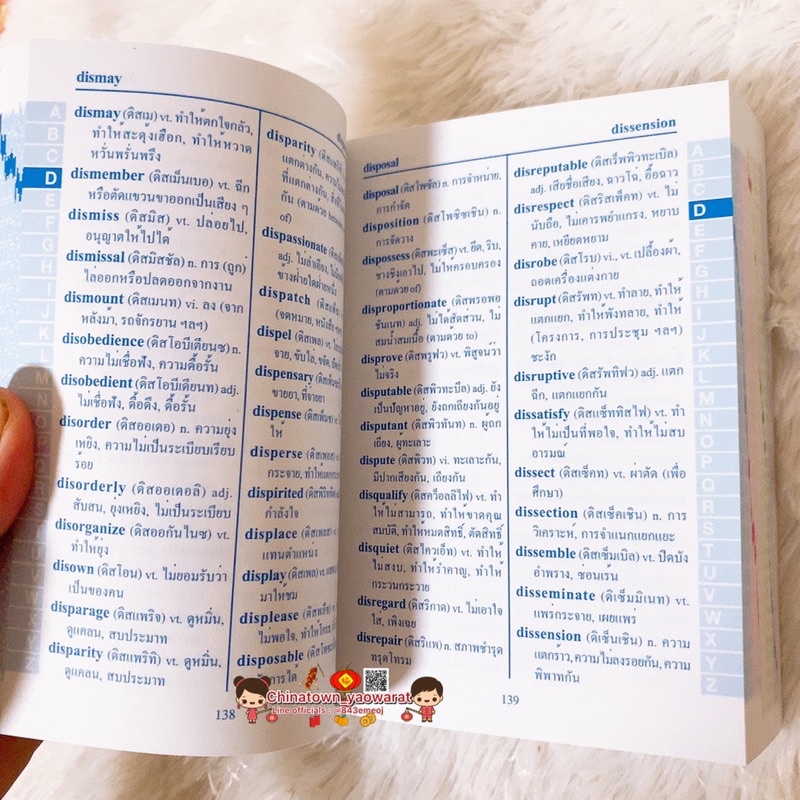 dismay
dismay (ดิสเม) vt. ทำให้ตกใจกลัว,
ทำให้สะดุ้งเฮือก, ทำให้หวาด
หวั่นพรั่นพรึง
dismember (ดิสเม็นเบอ) vt. ฉีก
หรือตัดแขนขาออกเป็นเสียง ๆ
dismiss (ดิสมิส) vt. ปล่อยไป,
อนุญาตให้ไปได้
dismissal (ดิสมิสซัล) n. การ (ถูก)
ไล่ออกหรือปลดออกจากงาน
dismount (ดิสเมนท) vi. ลง (จาก
หลังม้า, รถจักรยาน ฯลฯ)
disobedience (ดิสโอบีเดียนซ) n.
ความไม่เชื่อฟัง, ความดื้อรั้น
disobedient (ดิสโอบีเดียนท) adj.
ไม่เชื่อฟัง, ดื้อดึง, ดื้อรั้น
disorder (ดิสออเดอ) n. ความยุ่ง
เหยิง, ความไม่เป็นระเบียบเรียบ
ร้อย
disorderly (ดิสออเดอลิ) adj.
สับสน, ยุ่งเหยิง, ไม่เป็นระเบียบ
disorganize (ดิสออกันไนซ) vt.
ทำให้ยุ่ง
disown (ดิสโอน) vt. ไม่ยอมรับว่า
เป็นของตน
disparage (ดิสแพริจ) vt. ดูหมิ่น,
ดูแคลน, สบประมาท
disparity (ดิสแพริทิ) vt. ดูหมิ่น,
ดูแคลน, สบประมาท
disparity
แตกต่างกัน,
ที่แตกต่างกัน,
กัน (ตามด้วย
of)
dispassionate
adj. ไม่ลำเอียง,
ข้างฝ่ายใดฝ่ายหนึ่ง
dispatch
(จดหมาย, หนังสือ
dispel
จาย, ขับไล่,
dispensary
ขายยา, ที่จ่ายยา)
dispense
ให้
disperse
กระจาย,
dispirited
กำลังใจ
displace
แทนตำแหน่ง
display
มาให้ชม
displease
ไม่พอใจ,
disposable
138
disposal
dissension
disposal (ดิสโพซัล) n. การจำหน่าย,
การกำจัด
disposition (ดิสโพซิซเชิน) n.
การจัดวาง
dispossess (ดิสพะเซ็ส) vt. ยึด, ริบ,
ช่างชิงเอาไป, ไม่ให้ครอบครอง
(ตามด้วย of)
disproportionate (ดิสพรอพอ
ชันเนท) adj. ไม่ได้สัดส่วน, ไม่
สมน้ำสมเนื้อ (ตามด้วย to)
disprove (ดิสพรูฟว) vt. พิสูจน์ว่า
ไม่จริง
disputable (ดิสพิวทะบึล) adj. ยัง
เป็นปัญหาอยู่, ยังถกเถียงกันอยู่
disputant (ดิสพิวทันท) n. ผู้ถก
เถียง, ผู้ทะเลาะ
dispute (ดิสพิวท) vi. ทะเลาะกัน,
มีปากเสียงกัน, เถียงกัน
disqualify (ดิสคว็อลลิไฟ) vt. ทำ
ให้ไม่สามารถ, ทำให้ขาดคุณ
สมบัติ, ทำให้หมดสิทธิ์, ตัดสิทธิ์
disquiet (ดิสไควเอ็ท) vt. ทำให้
ไม่สงบ, ทำให้รำคาญ, ทำให้
กระวนกระวาย
disregard (ดิสริกาด) vt. ไม่เอาใจ
ใส่, เพิ่งเฉย
disrepair (ดิสริแพ) n. สภาพชำรุด
ทรุดโทรม
disreputable (ดิสเร็พพิวทะเบิล)
adj. เสียชื่อเสียง, ฉาวโฉ่, อื้อฉาว
disrespect (ดิสริสเพ็คท) vt. ไม่
นับถือ, ไม่เคารพยำแกรง, หยาบ
คาย, เหยียดหยาม
disrobe (ดิสโรบ) vi., vt. เปลื้องผ้า,
ถอดเครื่องแต่งกาย
disrupt (ดิสรัพท) vt. ทำลาย, ทำให้
แตกแยก, ทำให้พังทลาย, ทำให้
(โครงการ, การประชุม ฯลฯ)
ชะงัก
disruptive (ดิสรัพทิฟว) adj. แตก
ฉีก, แตกแยกกัน
dissatisfy (ดิสแซ็ททิสไฟ) vt. ทำ
ให้ไม่เป็นที่พอใจ, ทำให้ไม่สบ
อารมณ์
dissect (ดิสเซ็คท) vt. ผ่าตัด (เพื่อ
ศึกษา)
dissection (ดิสเซ็คเชิน) n. การ
วิเคราะห์, การจำแนกแยกแยะ
dissemble (ดิสเซ็มเบิล) vt. ปิดบัง
อำพราง, ซ่อนเร้น
disseminate (ดิเซ็มมิเนท) vt.
แพร่กระจาย, เผยแพร่
dissension (ดิเซ็นเชิน) n. ความ
แตกร้าว, ความไม่ลงรอยกัน, ความ
พิพาทกัน
139
A
B
C
D
E
F
G
H
I
J
K
L
M
N
O
P
Q
R
S
T
U
V
W
X
Y
Z
Chinatown_yaowarat
Line officials : @843emeoj